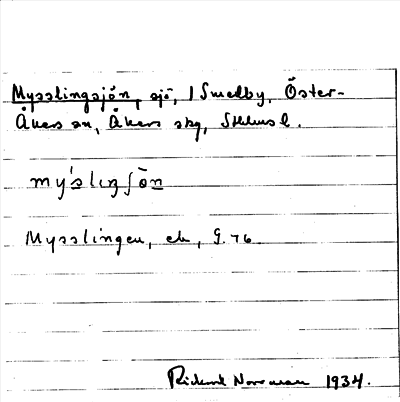 Mysslingsjön, sjö, i Smedby, Öster-
Åkers sn, Åkers skg, Sthlms l.
my´slıŋʃön
Mysslingen, ek, G. 76
Rickard Norrman 1934.